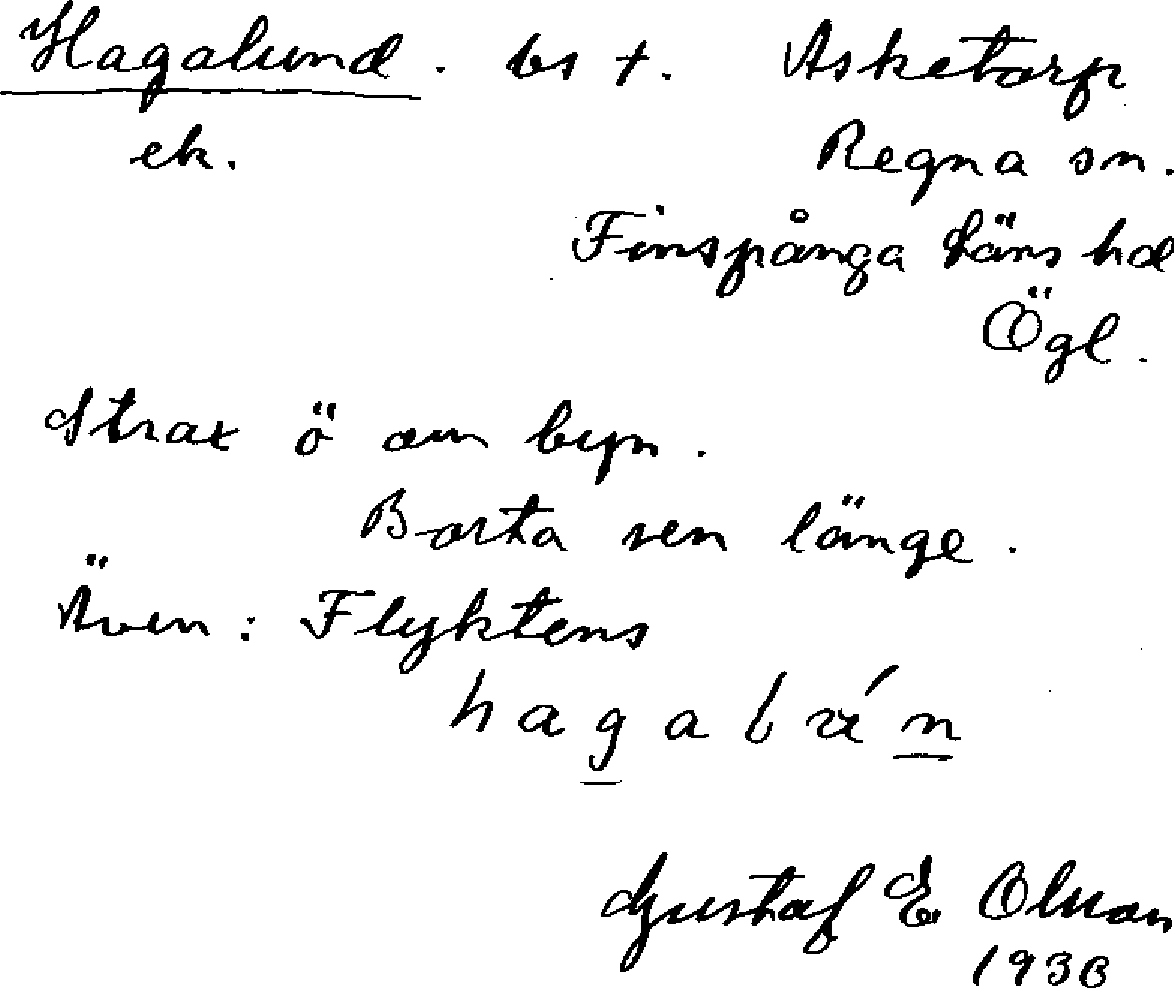 Hagalund. bs t. Asketorp
ek. Regna sn.
Finspånga läns hd
Ögl.
Strax ö om byn.
Borta sen länge.
Även: Flyktens
Gustaf E Olsson